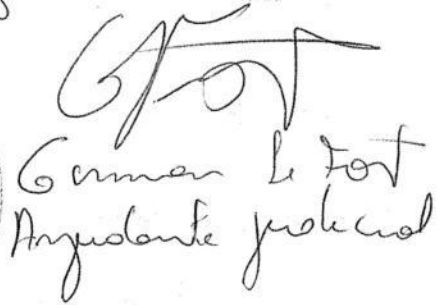 GFort
German Le Fort
Ayudante judicial